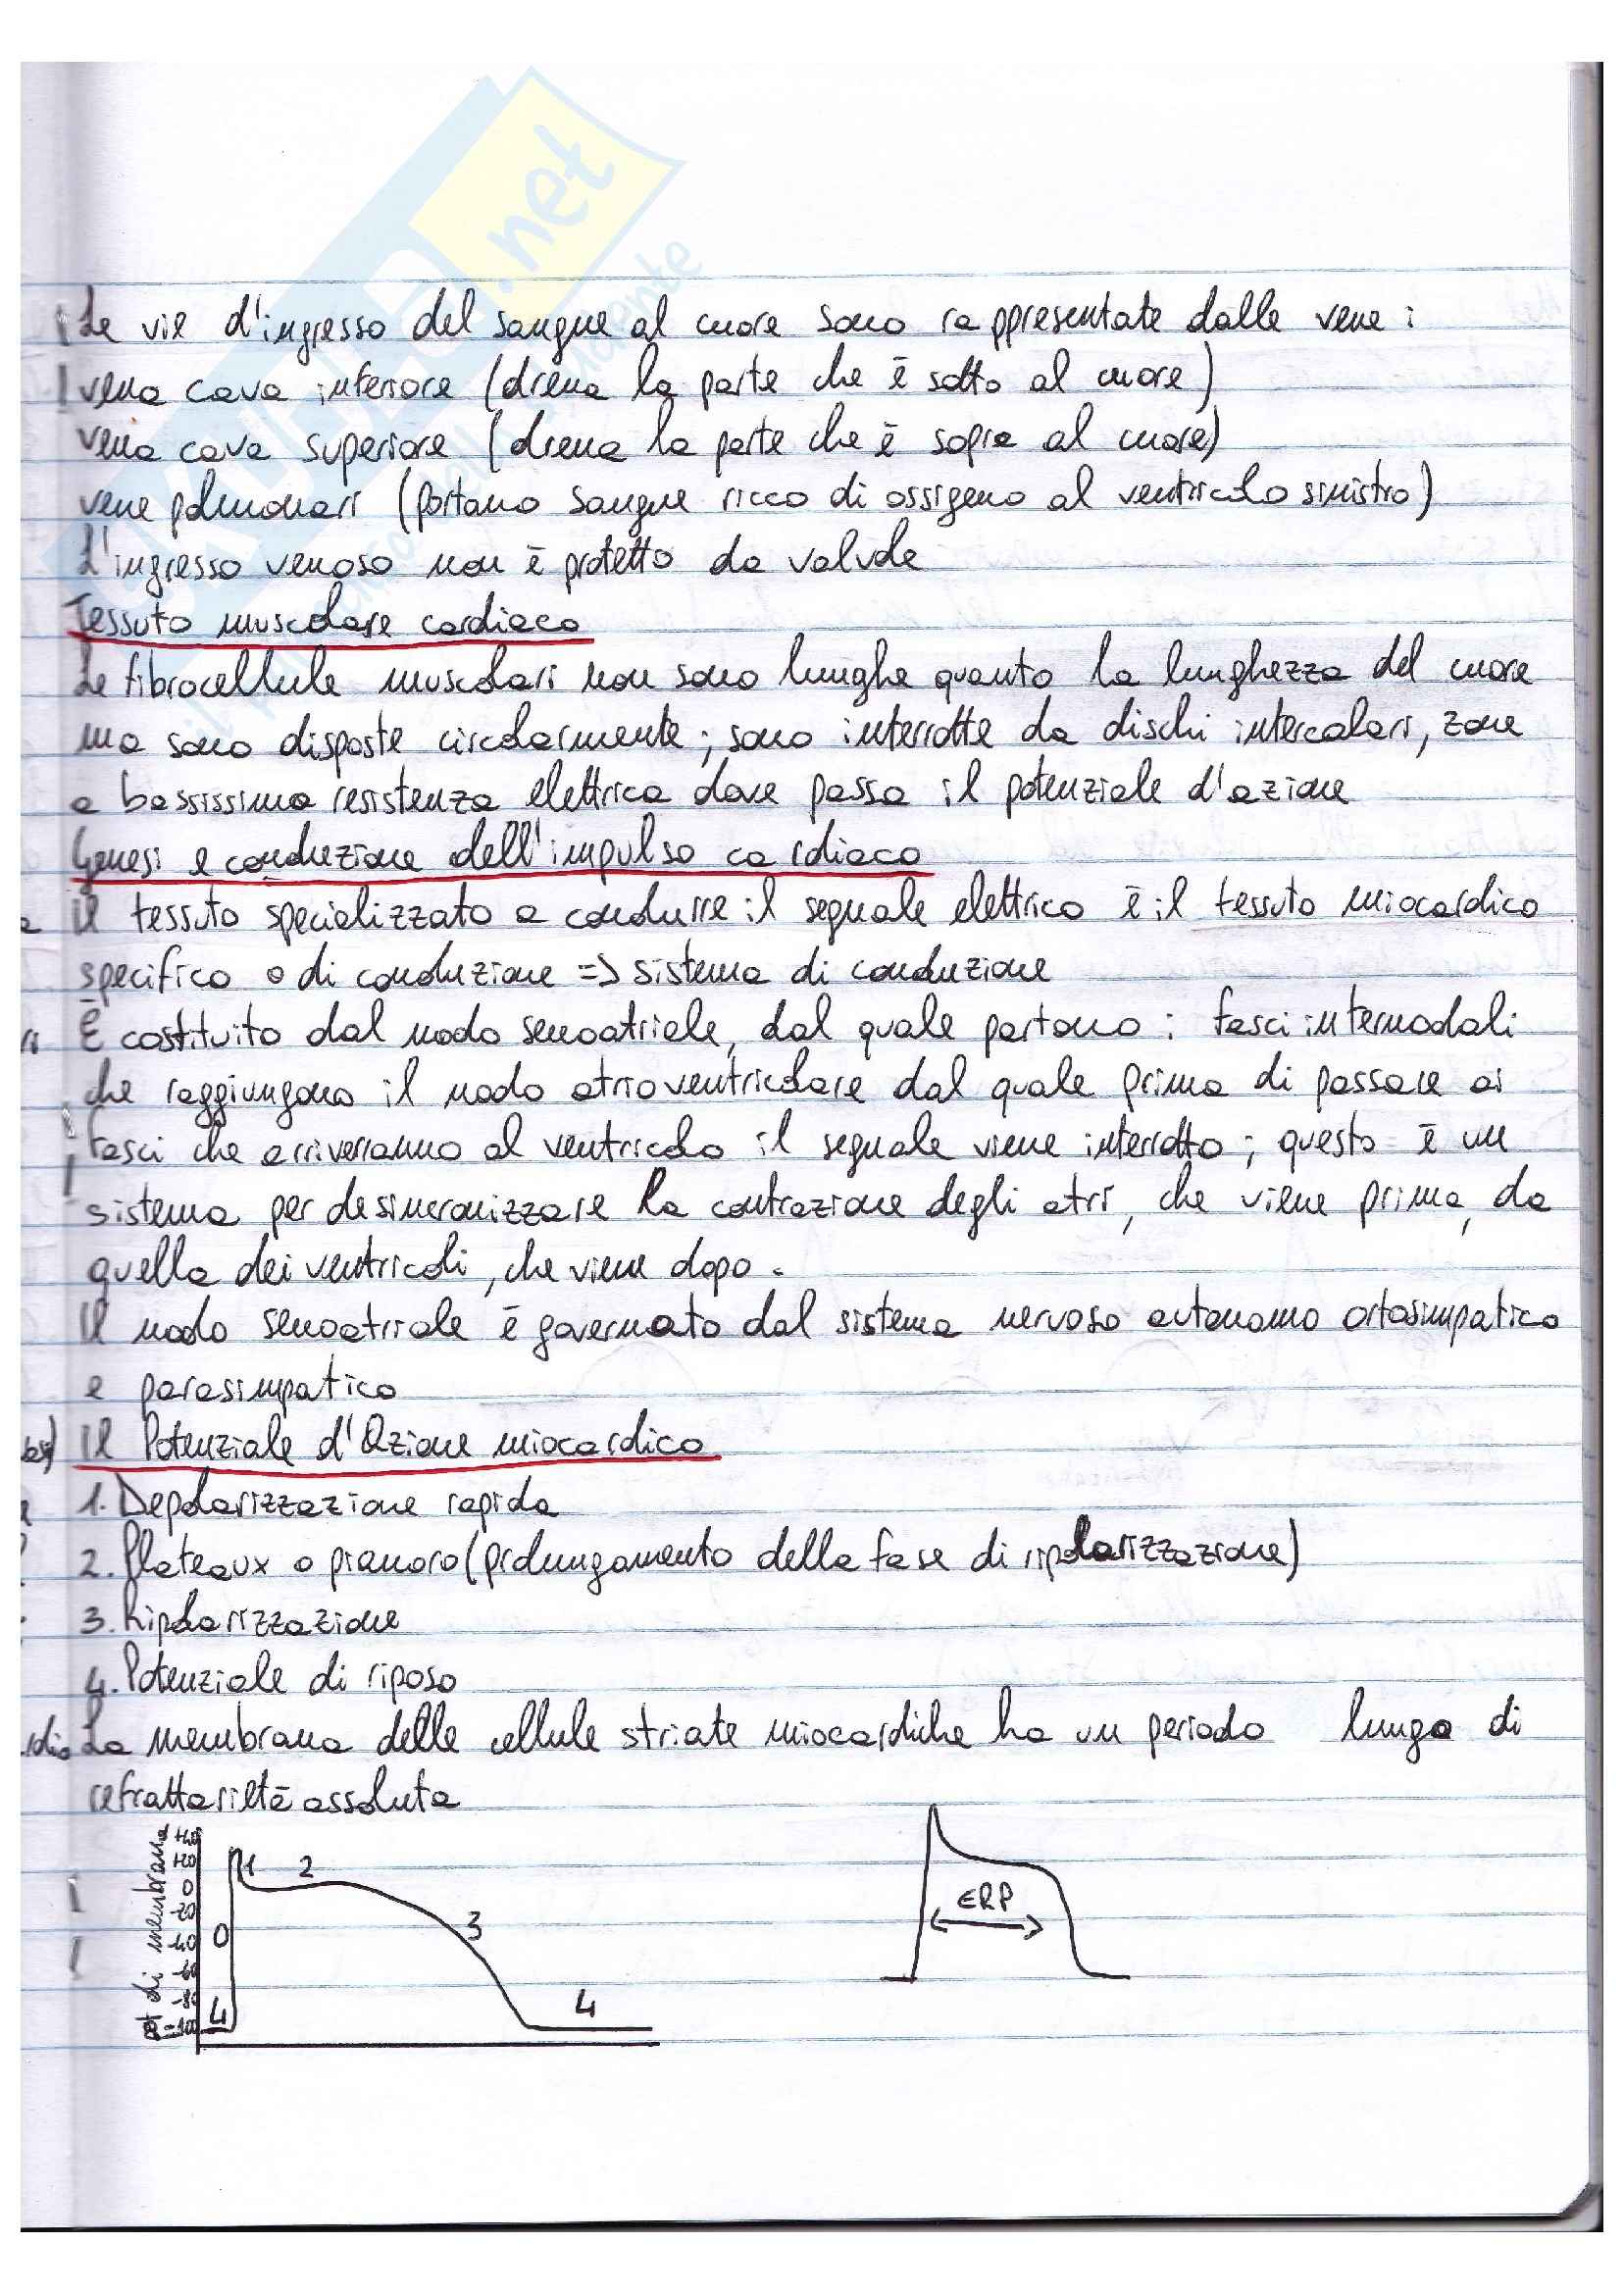 .net
Le vie d'ingresso del sangue al cuore sono rappresentate dalle vene :
vena cava inferiore (drena la parte che è sotto al cuore)
vena cava superiore (drena la parte che è sopra al cuore)
vene polmonari (portano sangue ricco di ossigeno al ventricolo sinistro)
L'ingresso venoso non è protetto da valvole
Tessuto muscolare cardiaco
Le fibrocellule muscolari non sono lunghe quanto la lunghezza del cuore
ma sono disposte circolarmente ; sono interrotte da dischi intercalari, zone
a bassissima resistenza elettrica dove passa il potenziale d'azione
Genesi e conduzione dell'impulso cardiaco
Il tessuto specializzato a condurre il segnale elettrico è il tessuto miocardico
specifico o di conduzione => sistema di conduzione
È costituito dal nodo senoatriale, dal quale partono : fasci internodali
che raggiungono il nodo atrioventricolare dal quale prima di passare ai
fasci che arriveranno al ventricolo il segnale viene interrotto ; questo è un
sistema per desincronizzare la contrazione degli atri, che viene prima, da
quella dei ventricoli, che viene dopo.
Il nodo senoatriale è governato dal sistema nervoso autonomo ortosimpatico
e parasimpatico
Il Potenziale d'Azione miocardico
1. Depolarizzazione rapida
2. Plateaux o pianoro (prolungamento della fase di ripolarizzazione)
3. Ripolarizzazione
4. Potenziale di riposo
La membrana delle cellule striate miocardiche ha un periodo lungo di
refrattarieltà assoluta
di membrana
+40
+20
0
-20
-40
-60
-80
-100
4
0
1
2
3
4
ERP